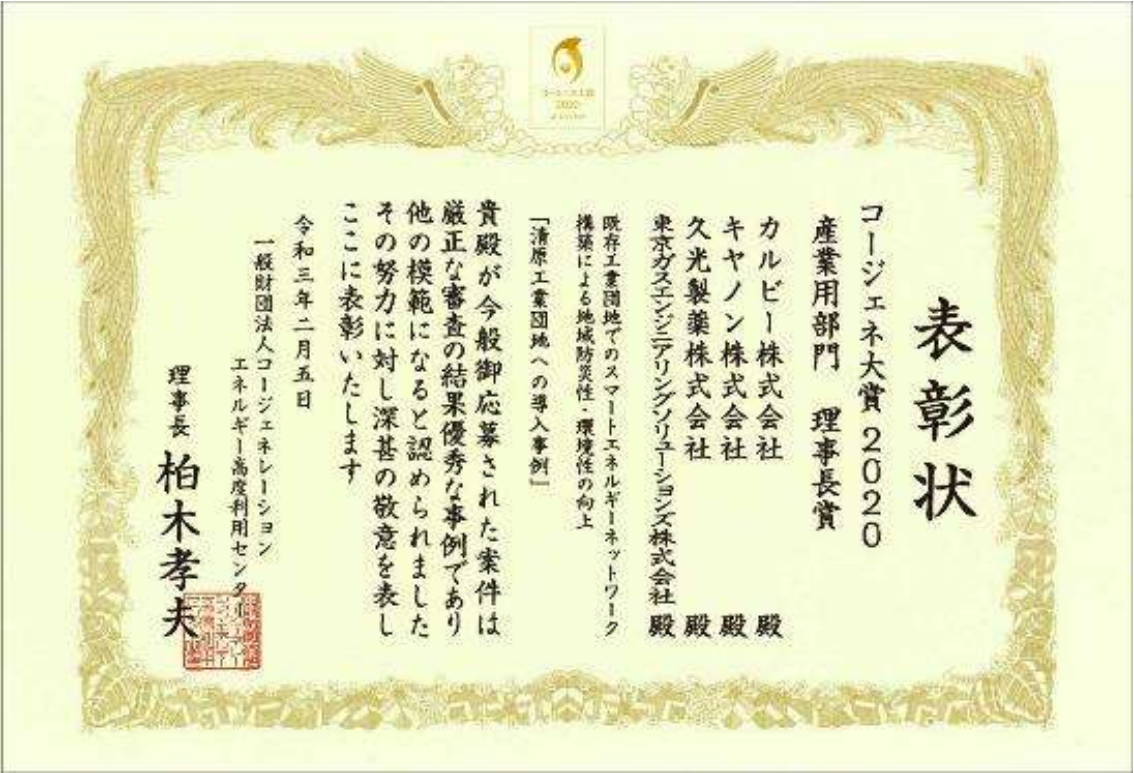 コージェネ大賞
2020
表彰状
コージェネ大賞 2020
産業用部門 理事長賞
カルビー株式会社 殿
キヤノン株式会社 殿
久光製薬株式会社 殿
東京ガスエンジニアリングソリューションズ株式会社 殿
既存工業団地でのスマートエネルギーネットワーク
構築による地域防災性・環境性の向上
「清原工業団地への導入事例」
貴殿が今般御応募された案件は
厳正な審査の結果優秀な事例であり
他の模範になると認められました
その努力に対し深甚の敬意を表し
ここに表彰いたします
令和三年二月五日
一般財団法人コージェネレーション
エネルギー高度利用センター
理事長 柏木孝夫